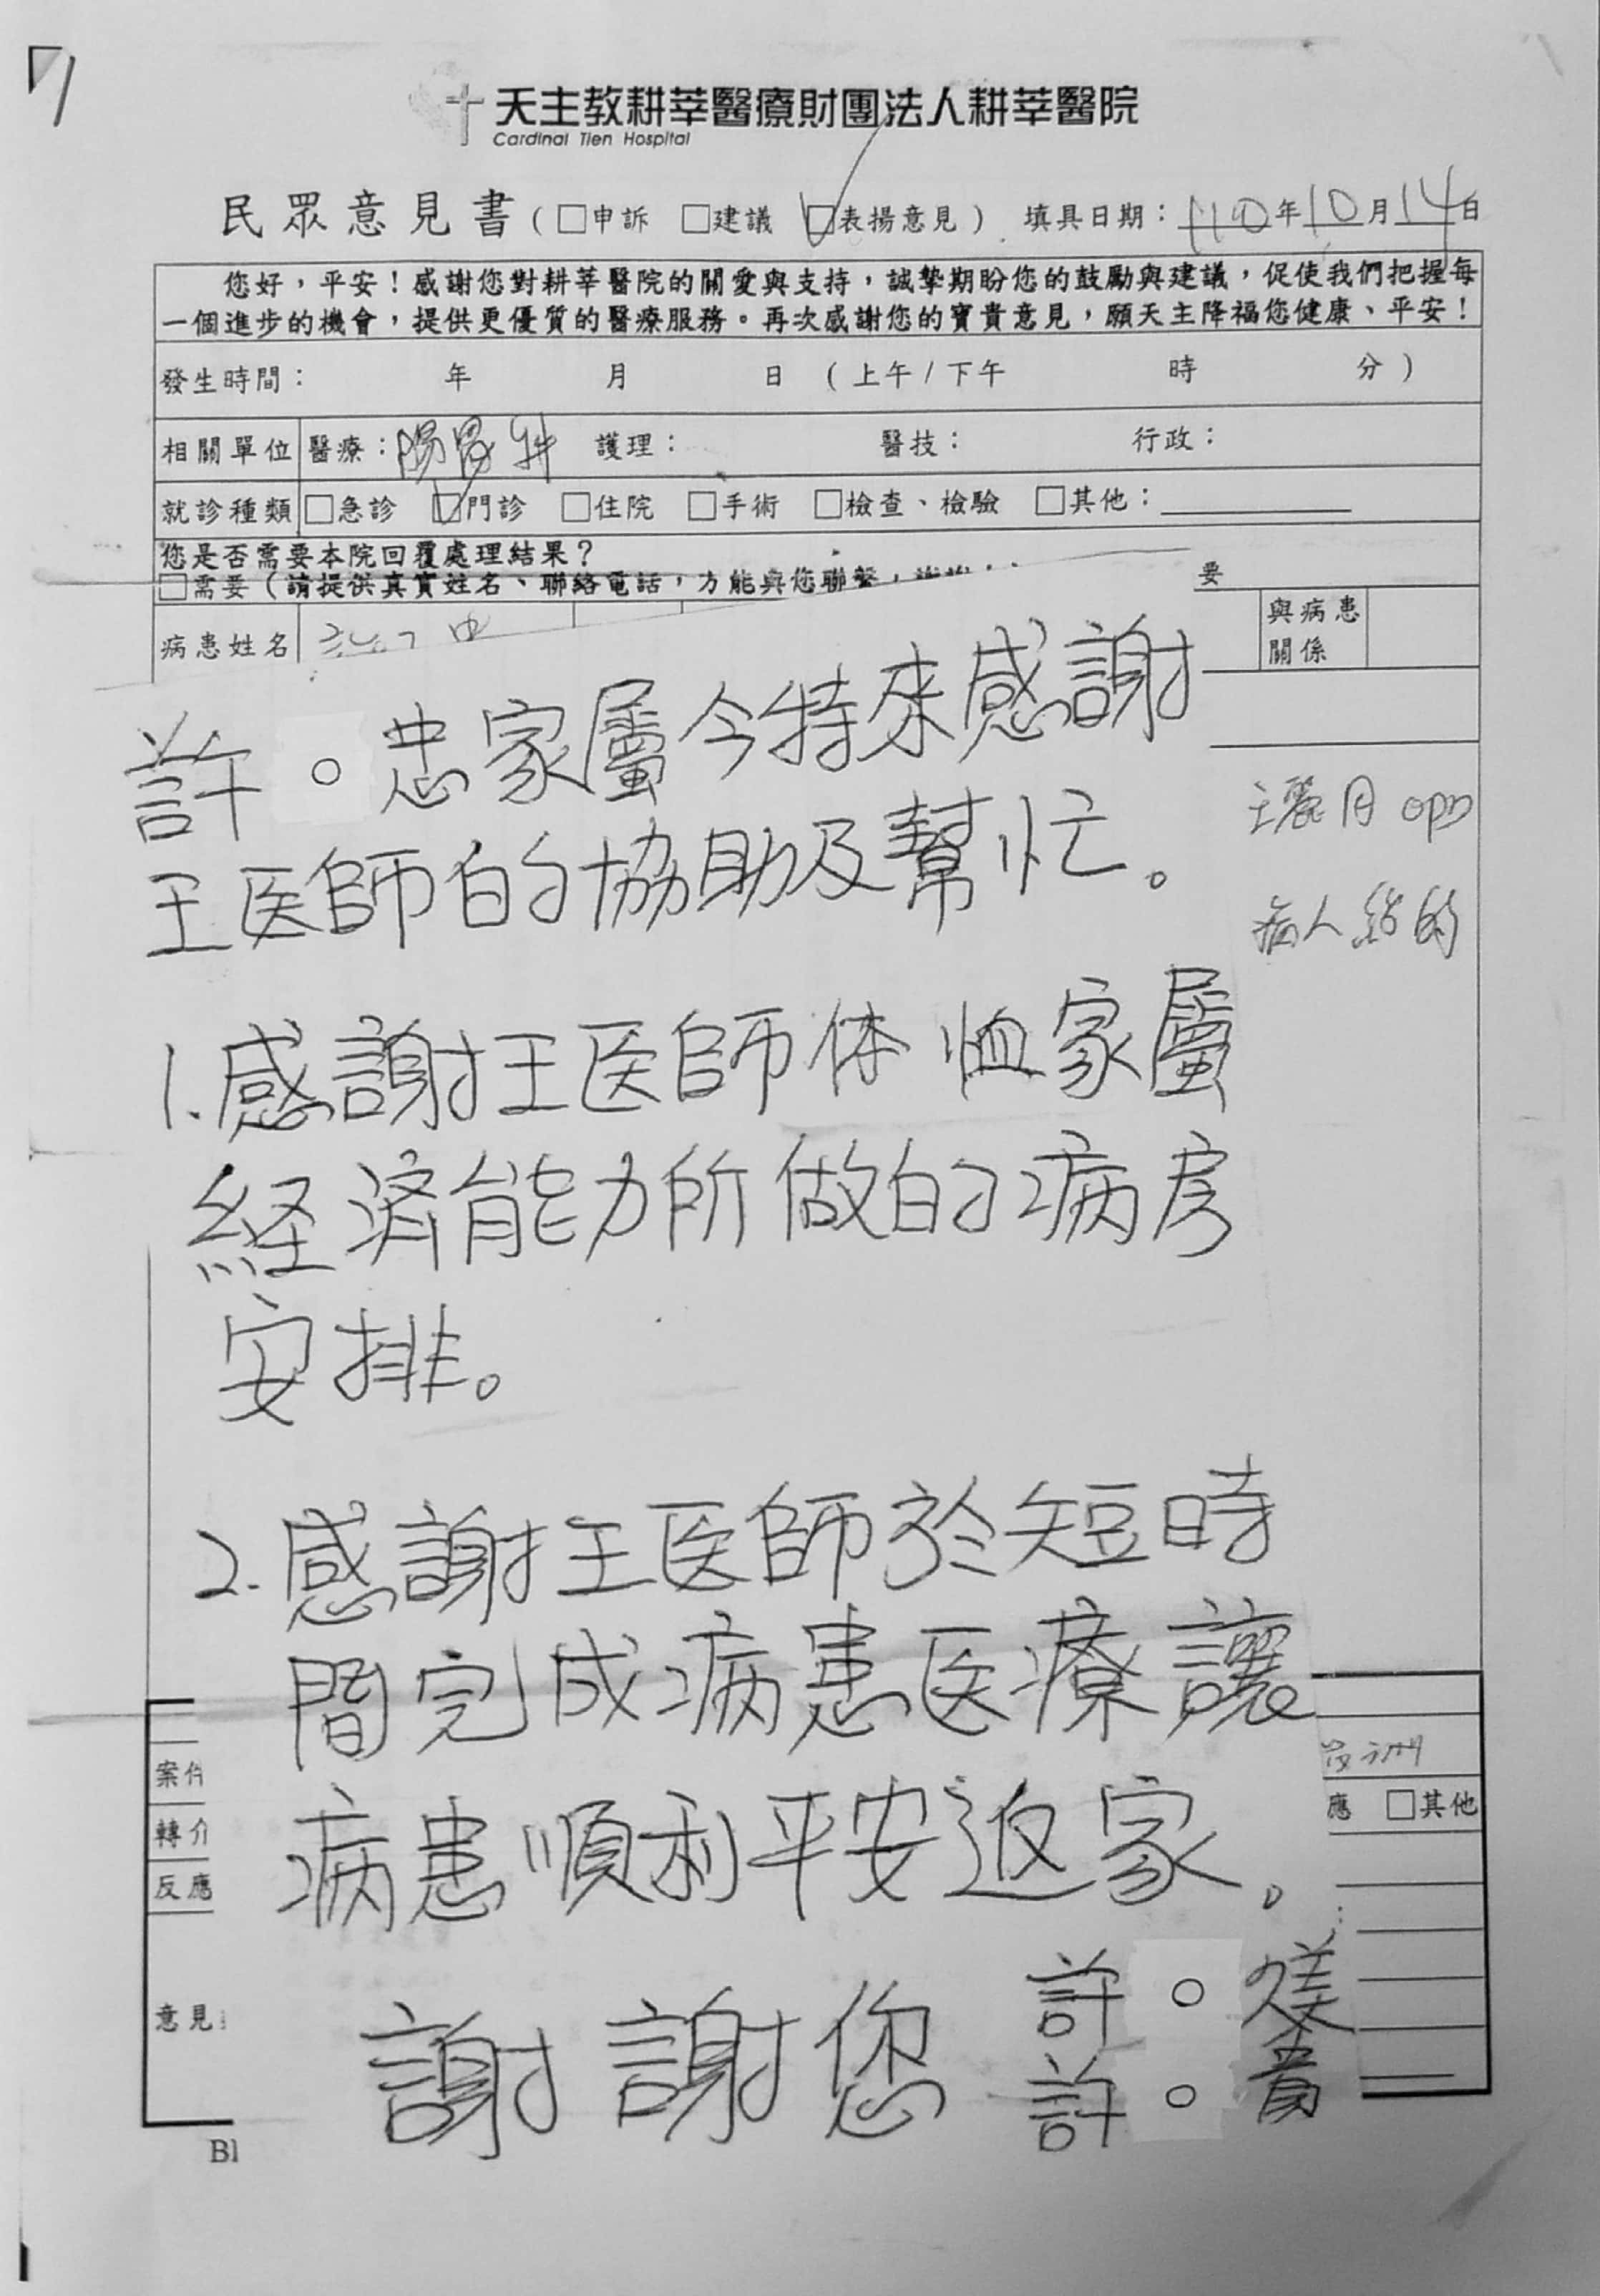 天主教耕莘醫療財團法人耕莘醫院
Cardinal Tien Hospital
民眾意見書(□申訴 □建議 ☑表揚意見) 填具日期:110年10月14日
您好,平安!感謝您對耕莘醫院的關愛與支持,誠摯期盼您的鼓勵與建議,促使我們把握每
一個進步的機會,提供更優質的醫療服務。再次感謝您的寶貴意見,願天主降福您健康、平安!
發生時間: 年 月 日 (上午/下午 時 分)
相關單位 醫療:腸胃科 護理: 醫技: 行政:
就診種類 □急診 ☑門診 □住院 □手術 □檢查、檢驗 □其他:
您是否需要本院回覆處理結果?
□需要(請提供真實姓名、聯絡電話,方能與您聯繫, 要
病患姓名 與病患
關係
許○忠家屬今特來感謝
王医師的協助及幫忙。
王麗月 opd
病人給的
1.感謝王医師体恤家屬
経済能力所做的病房
安排。
2.感謝王医師於短時
間完成病患医療讓
病患順利平安返家。
案件
轉介 應 □其他
反應
意見
謝謝您
許○媄
許○貴